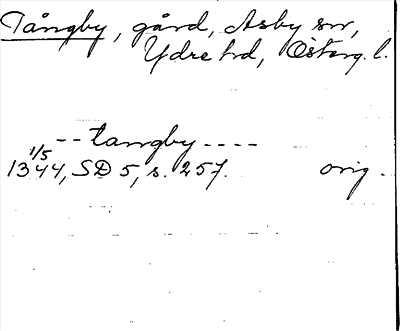 Tångby, gård, Asby sn,
Ydre hd, Österg. l.
-- tangby ----
1/5
1344, SD 5, s. 257. orig.